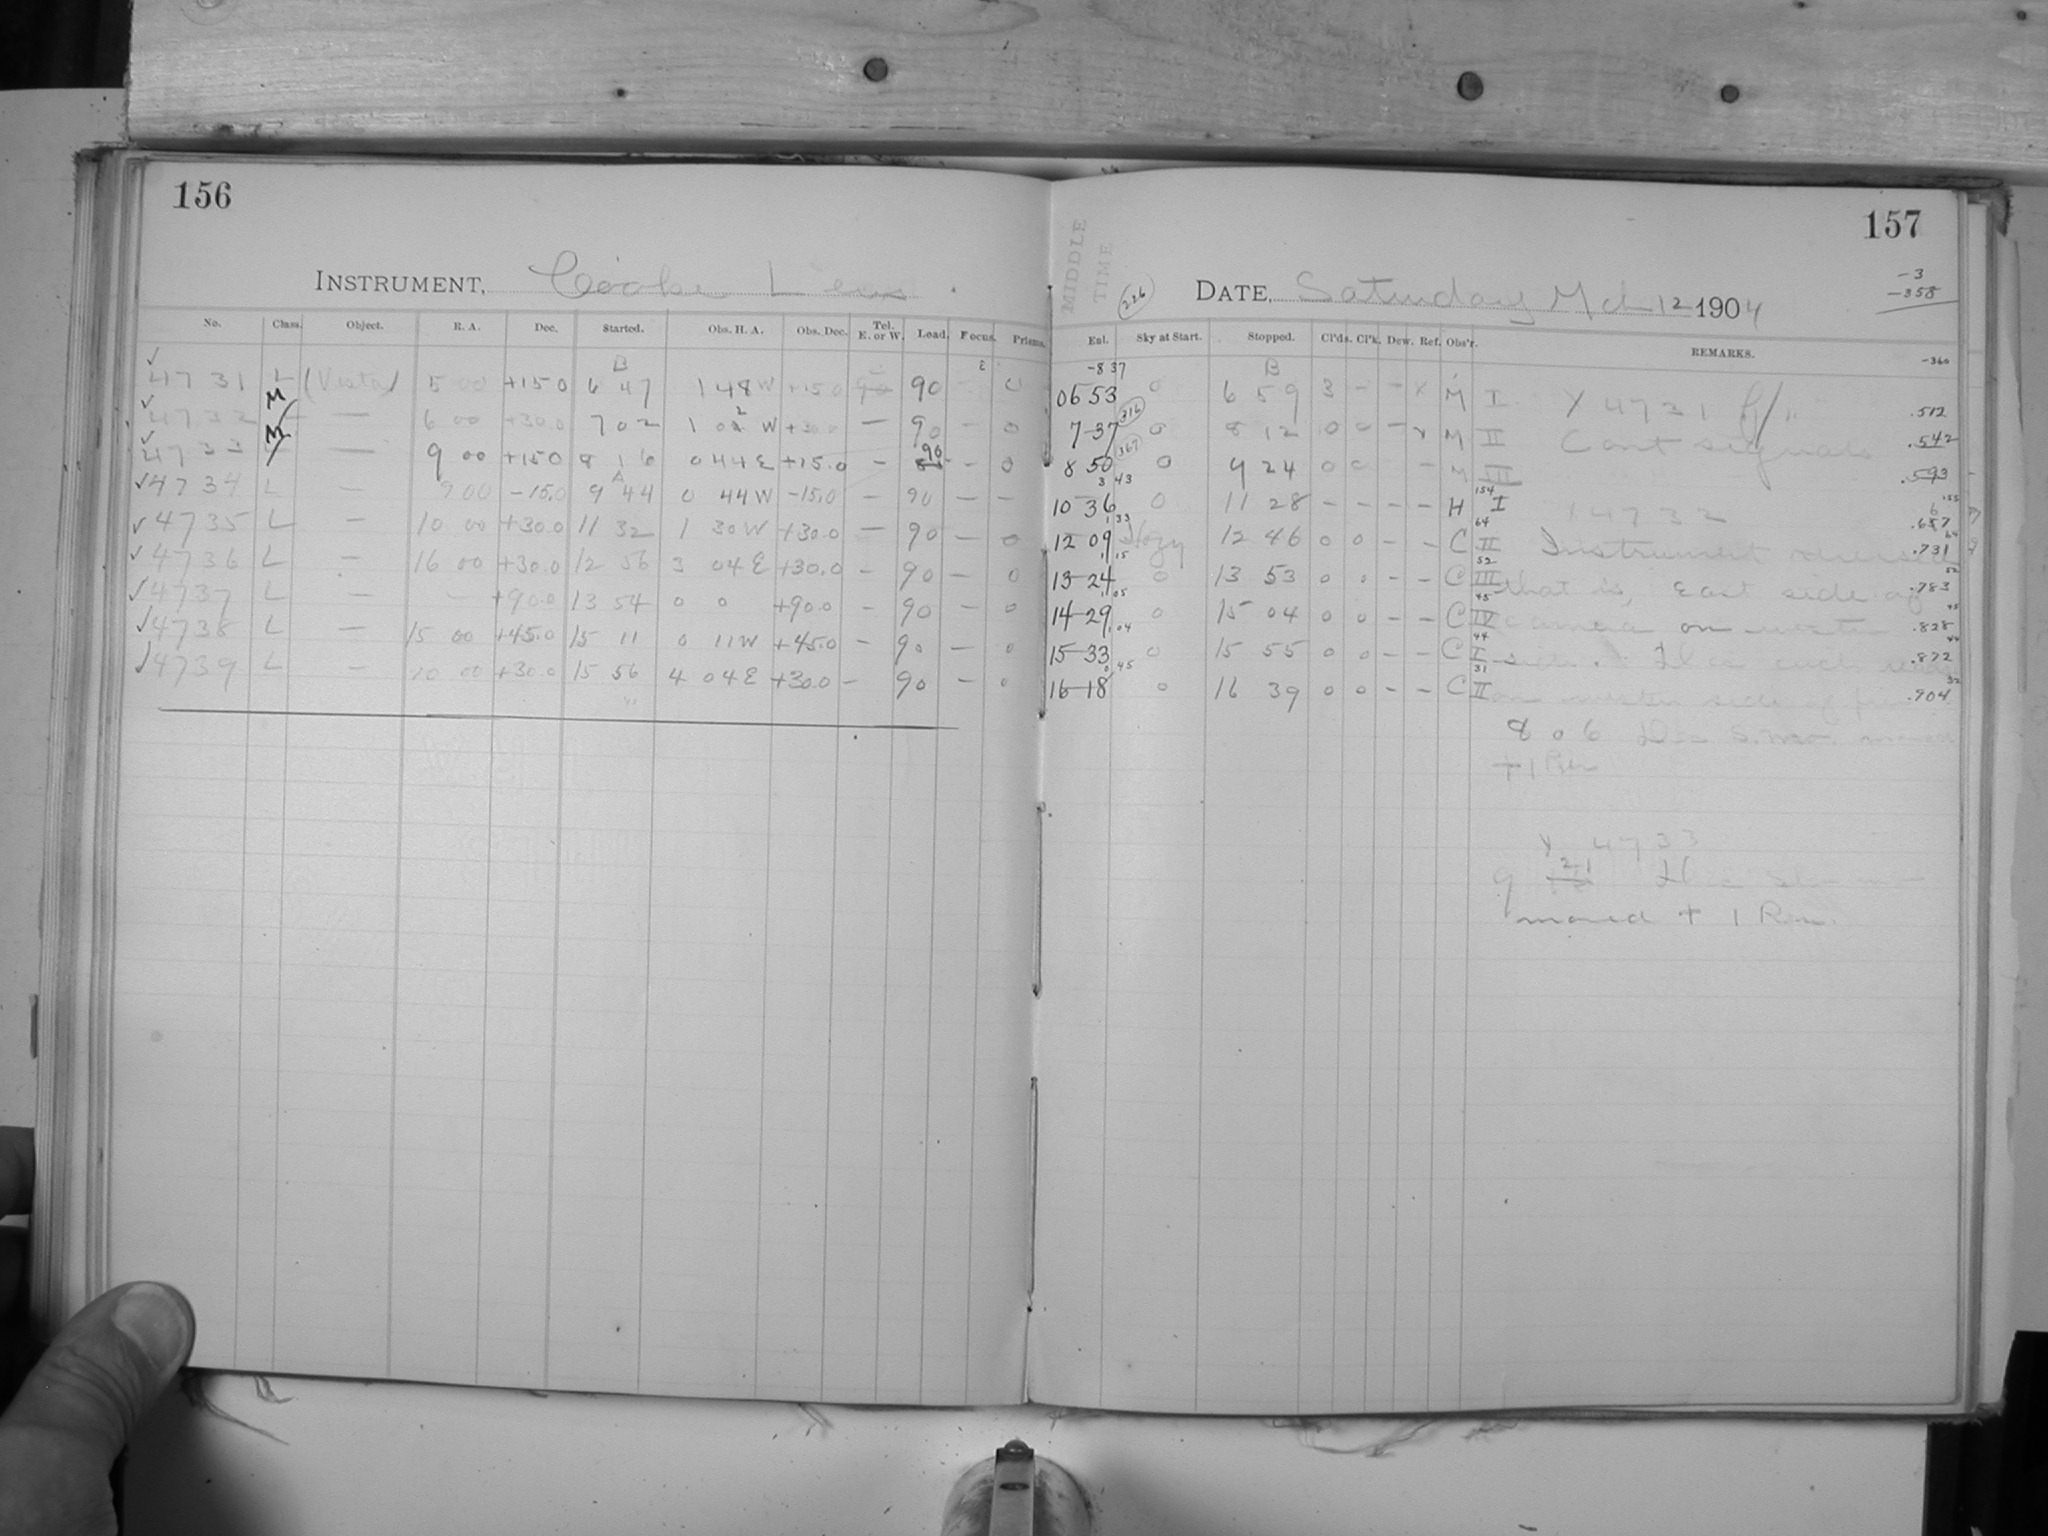 156
INSTRUMENT, Cooke Lens.
No. Class. Object. R. A. Dec. Started. Obs. H. A. Obs. Dec. Tel. E. or W. Load. Focus. Prisms.
B
✓ 4731 L (Vesta) 5 00 +15.0 6 47 1 48 W +15.0 90 – 0
✓ 4732 M — 6 00 +30.0 7 02 1 02 W +30.0 — 90 – 0
✓ 4733 M — 9 00 +15.0 8 16 0 44 E +15.0 – 90 – 0
A
✓ 4734 L — 9 00 –15.0 9 44 0 44 W –15.0 – 90 – –
✓ 4735 L — 10 00 +30.0 11 32 1 30 W +30.0 — 90 – 0
✓ 4736 L — 16 00 +30.0 12 56 3 04 E +30.0 – 90 – 0
✓ 4737 L — – +90.0 13 54 0 0 +90.0 – 90 – 0
✓ 4738 L — 15 00 +45.0 15 11 0 11 W +45.0 – 90 – 0
✓ 4739 L — 20 00 +30.0 15 56 4 04 E +30.0 – 90 – 0
157
MIDDLE TIME
226
DATE, Saturday Mch 12 1904
–3
–358
Enl. Sky at Start. Stopped. Cl'ds. Cl'k. Dew. Ref. Obs'r. REMARKS.
–837 B –360
06 53 0 6 59 3 – – x M I X 4731 .512
316
7–37 0 8 12 0 0 – M II Cont signals .542
367
8 50 0 9 24 0 0 – M III .593
3 43 154 155
10–36 0 11 28 – – – – H I X 4732 .657
1 33 64
12 09 Hazy 12 46 0 0 – – C II Instrument reversed .731
1 15 52
13–24 0 13 53 0 0 – – C III that is, East side of .783
1 05 45
14–29 0 15 04 0 0 – – C IV camera on western .828
1 04 44
15–33 0 15 55 0 0 – – C I side. .872
0 45 31 32
16–18 0 16 39 0 0 – – C II on western side of .904
8 0 6 Dec S. mo. moved
+1 Rev
X 4733
9 21
moved + 1 Rev.